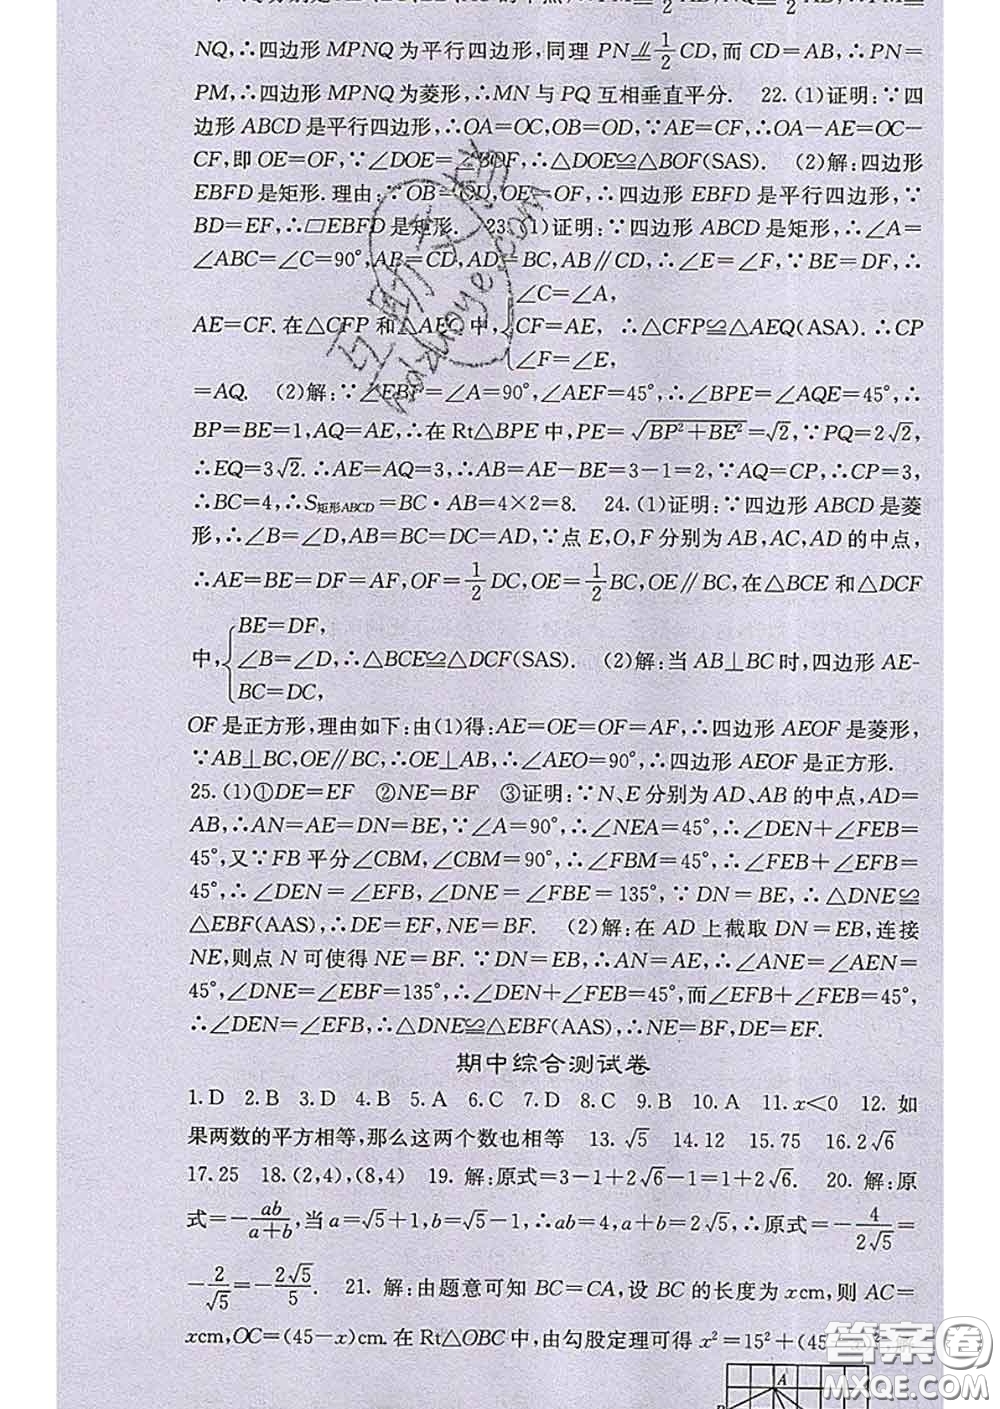 NQ,∴四边形 MPNQ 为平行四边形,同理 PN∥=1/2CD,而 CD=AB,∴PN=
PM,∴四边形 MPNQ 为菱形,∴MN 与 PQ 互相垂直平分. 22.(1)证明:∵四
边形 ABCD 是平行四边形,∴OA=OC,OB=OD,∵AE=CF,∴OA-AE=OC-
CF,即 OE=OF,∵∠DOE=∠BOF,∴△DOE≌△BOF(SAS). (2)解:四边形
EBFD 是矩形.理由:∵OB=OD,OE=OF,∴四边形 EBFD 是平行四边形,∵
BD=EF,∴▱EBFD 是矩形. 23.(1)证明:∵四边形 ABCD 是矩形,∴∠A=
∠ABC=∠C=90°,AB=CD,AD=BC,AB∥CD,∴∠E=∠F,∵BE=DF,∴
∠C=∠A,
AE=CF.在△CFP 和△AEQ 中,{CF=AE, ∴△CFP≌△AEQ(ASA).∴CP
∠F=∠E,
=AQ. (2)解:∵∠EBF=∠A=90°,∠AEF=45°,∴∠BPE=∠AQE=45°,∴
BP=BE=1,AQ=AE,∴在 Rt△BPE 中,PE=√(BP²+BE²)=√2,∵PQ=2√2,
∴EQ=3√2.∴AE=AQ=3,∴AB=AE-BE=3-1=2,∵AQ=CP,∴CP=3,
∴BC=4,∴S矩形ABCD=BC·AB=4×2=8. 24.(1)证明:∵四边形 ABCD 是菱
形,∴∠B=∠D,AB=BC=DC=AD,∵点 E,O,F 分别为 AB,AC,AD 的中点,
∴AE=BE=DF=AF,OF=1/2DC,OE=1/2BC,OE∥BC,在△BCE 和△DCF
BE=DF,
中,{∠B=∠D,∴△BCE≌△DCF(SAS). (2)解:当 AB⊥BC 时,四边形 AE-
BC=DC,
OF 是正方形,理由如下:由(1)得:AE=OE=OF=AF,∴四边形 AEOF 是菱形,
∵AB⊥BC,OE∥BC,∴OE⊥AB,∴∠AEO=90°,∴四边形 AEOF 是正方形.
25.(1)①DE=EF ②NE=BF ③证明:∵N、E 分别为 AD、AB 的中点,AD=
AB,∴AN=AE=DN=BE,∵∠A=90°,∴∠NEA=45°,∴∠DEN+∠FEB=
45°,又∵FB 平分∠CBM,∠CBM=90°,∴∠FBM=45°,∴∠FEB+∠EFB=
45°,∴∠DEN=∠EFB,∠DNE=∠FBE=135°,∵DN=BE,∴△DNE≌
△EBF(AAS),∴DE=EF,NE=BF. (2)解:在 AD 上截取 DN=EB,连接
NE,则点 N 可使得 NE=BF.∵DN=EB,∴AN=AE,∴∠ANE=∠AEN=
45°,∠DNE=∠EBF=135°,∴∠DEN+∠FEB=45°,而∠EFB+∠FEB=45°,
∴∠DEN=∠EFB,∴△DNE≌△EBF(AAS),∴NE=BF,DE=EF.
期中综合测试卷
1.D 2.B 3.D 4.B 5.A 6.C 7.D 8.C 9.B 10.A 11.x<0 12.如
果两数的平方相等,那么这两个数也相等 13.√5 14.12 15.75 16.2√6
17.25 18.(2,4),(8,4) 19.解:原式=3-1+2√6-1=1+2√6. 20.解:原
式=-ab/(a+b),当 a=√5+1,b=√5-1,∴ab=4,a+b=2√5,∴原式=-4/(2√5)=
-2/√5=-2√5/5. 21.解:由题意可知 BC=CA,设 BC 的长度为 xcm,则 AC=
xcm,OC=(45-x)cm.在 Rt△OBC 中,由勾股定理可得 x²=15²+(45
A
互助文学
hdzuoye.com
答案圈
MXQE.COM